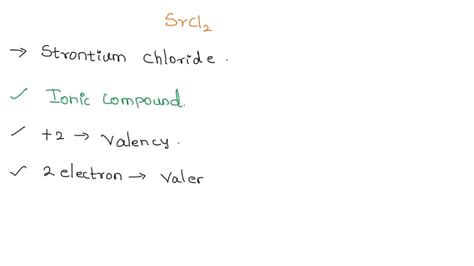 SrCl2
→ Strontium chloride.
✓ Ionic compound.
✓ +2 → Valency.
✓ 2 electron → Valer